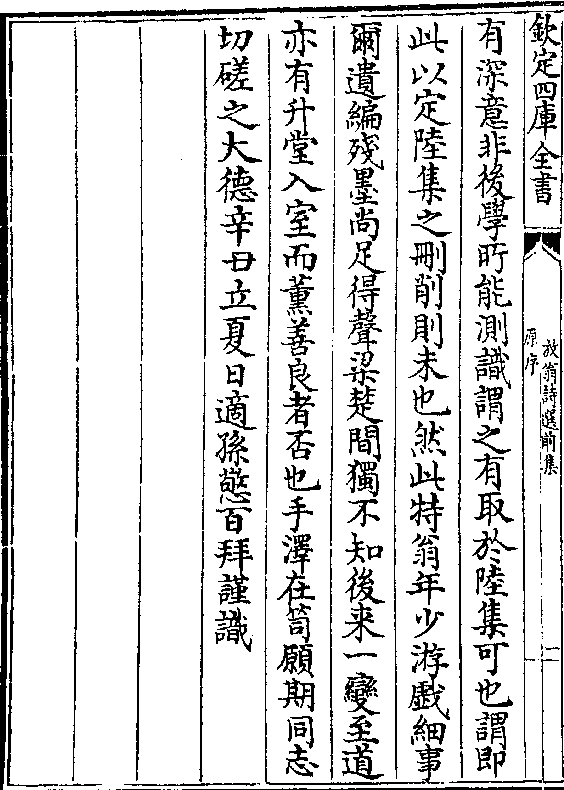 欽定四庫全書
放翁詩選前集
原序
二
有深意非後學所能測識謂之有取於陸集可也謂即
此以定陸集之刪削則未也然此特翁年少游戲細事
爾遺編殘墨尚足得聲梁楚間獨不知後来一變至道
亦有升堂入室而薫善良者否也手澤在笥願期同志
切磋之大德辛丑立夏日適孫憼百拜謹識